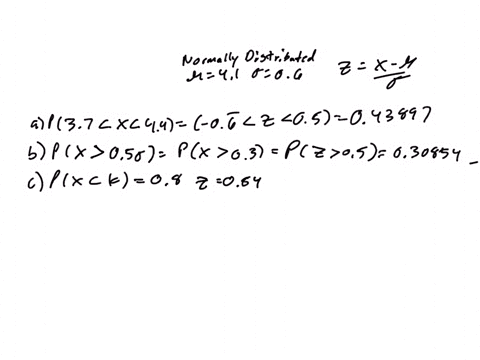 Normally Distributed
μ=4.1 σ=0.6
z = x-μ/σ
a) P(3.7<x<4.4)=(-0.6̅<z<0.5)=0.43897
b) P(x>0.5σ)= P(x>0.3)=P(z>0.5)=0.30854
c) P(x<k)=0.8 z=0.84